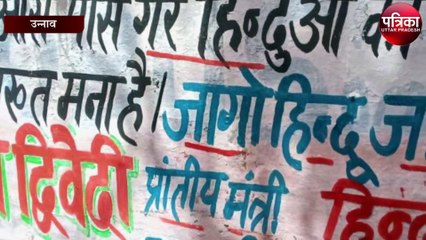 उन्नाव
पत्रिका
UTTAR PRADESH
पास गैर हिन्दुओं का
मना है। जागो हिन्दू
द्विवेदी प्रांतीय मंत्री